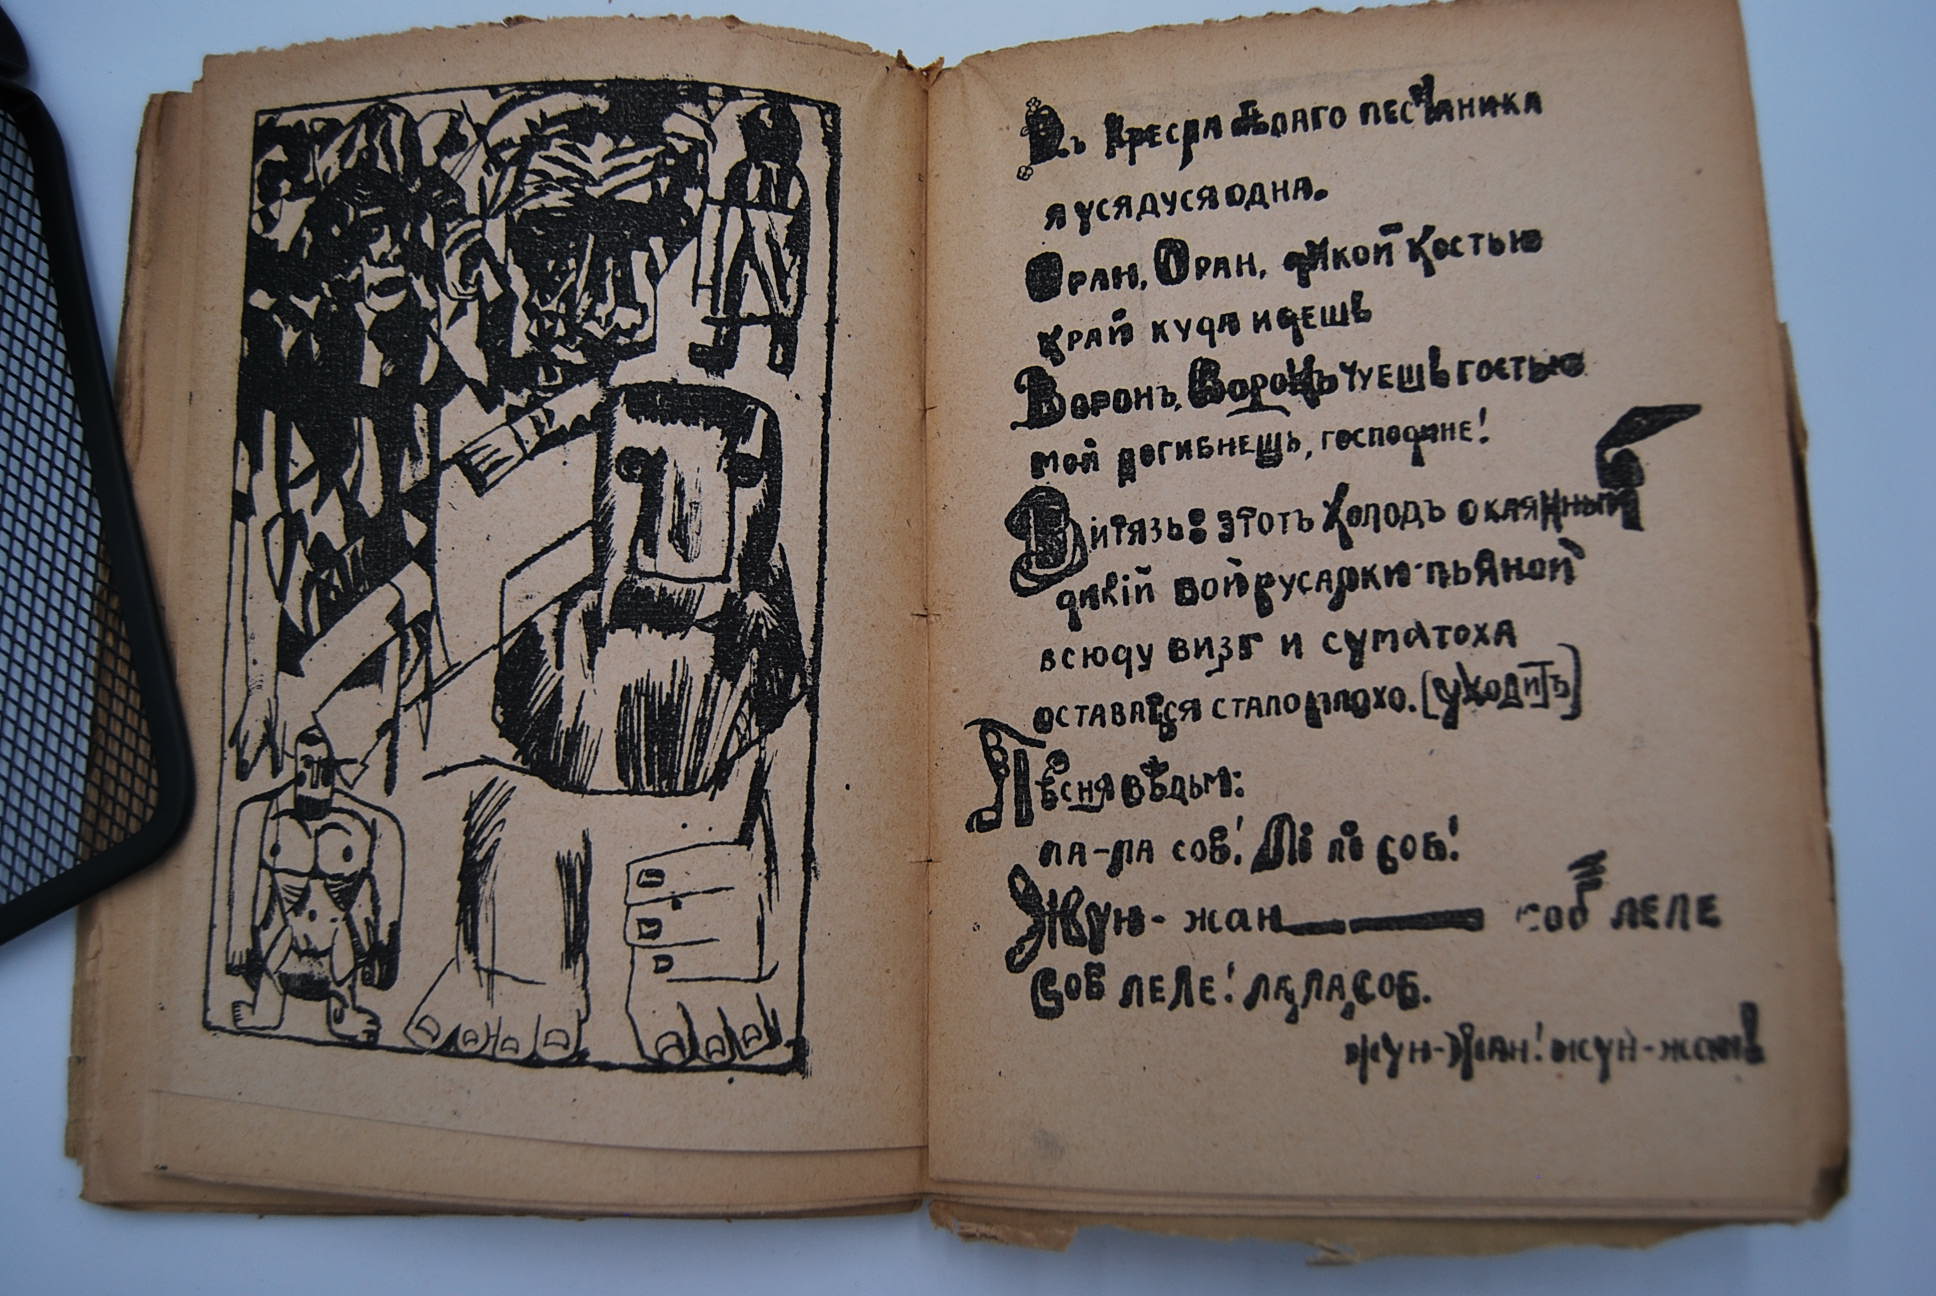 Въ кресла бѣлаго песчаника
я усядуся одна.
Оран, Оран, дикой костью
край куда идешь
Воронъ, Воронъ чуешь гостью
мой погибнешь, господине!
Витязь: этотъ холодъ окаянный
дикій вой русалки пьяной
всюду визг и суматоха
оставатся стало плохо. (уходитъ)
Пѣсня вѣдьм:
ла-ла соб! Лі лі соб!
Жун-жан — соб леле
соб леле! ла, ла, соб.
жун-жан! жун-жан!